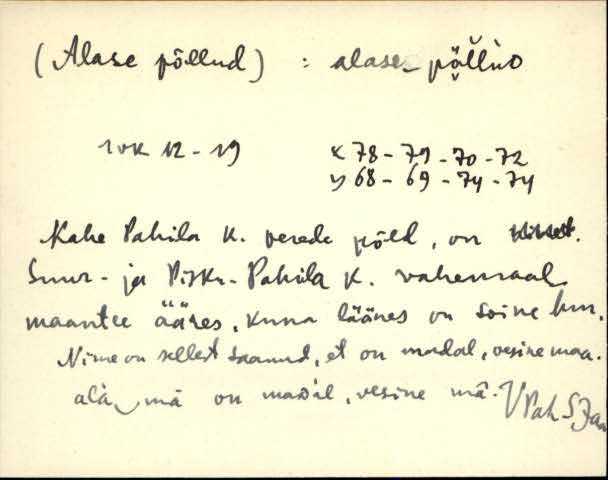 (Alase põllud) : alase põlluD
1vk 12 - 19 x 78 - 79 - 70 - 72
y 68 - 69 - 74 - 74
Kahe Pahila k. perede põld, on
Suur- ja Väike-Pahila k. vahemaal
maantee ääres, kuna läänes on soine
Nime on sellest saanud, et on madal, vesine maa.
ala mā on maDal, vesine mā. Pah